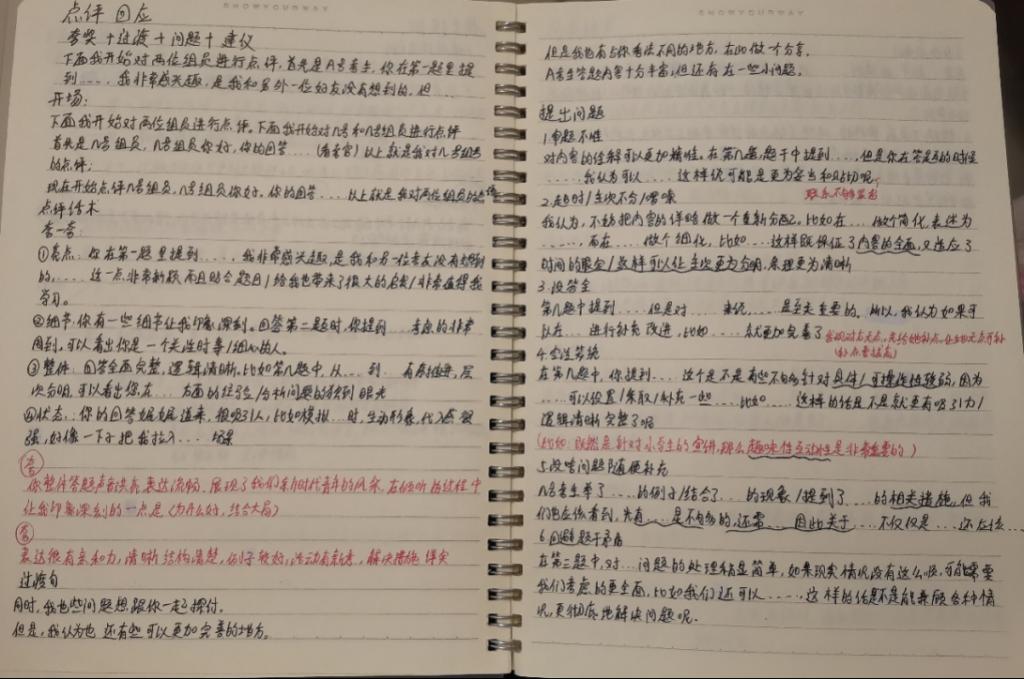 SNOWYOURWAY
点评 回应
夸奖 + 过渡 + 问题 + 建议
下面我开始对两位组员进行点评,首先是A号考生,你在第一题里提
到....,我非常感兴趣,是我和另外一位好友没有想到的,但...
开场:
下面我开始对两位组员进行点评。下面我开始对几号和几号组员进行点评
首先是几号组员,几号组员你好,你的回答....(看考官)以上就是我对几号组员
的点评;
现在开始点评几号组员,几号组员你好,你的回答....以上就是我对两位组员的
点评话术
夸一夸:
①亮点:你在第一题里提到....,我非常感兴趣,是我和另一位考友没有想到
的,....这一点非常新颖而且贴合题目/给我也带来了很大的启发/非常值得我
学习。
②细节:你有一些细节让我印象深刻。回答第二题时,你提到...考虑的非常
周到,可以看出你是一个关注时事/细心的人。
③整体:回答全面完整,逻辑清晰。比如第几题中,从...到...有序推进,层
次分明,可以看出您在...方面的经验/分析问题的独到眼光
④状态:你的回答娓娓道来,很吸引人,比如模拟...时,生动形象,代入感很
强,好像一下子把我拉入...场景
你整体答题声音洪亮表达流畅,展现了我们新时代青年的风采,在倾听的过程中
让我印象深刻的一点是(为什么好,结合大局)
表达很有亲和力,清晰结构清楚,例子较好,活动有新意,解决措施详实
过渡句
同时,我也些问题想跟你一起探讨。
但是,我认为也还有些可以更加完善的地方。
SNOWYOURWAY
但是我也有与你看法不同的地方,在此做一个分享。
A考生答题内容十分丰富,但还存在一些小问题。
提出问题
1.审题不准
对内容的理解可以更加精准。在第几题,题干中提到....,但是你在答题的时候
....,我认为可以....这样优可能是更为妥当和贴切呢,
联系不够紧密
2.超时/主次不分/啰嗦
我认为,不妨把内容的详略做一个重新分配。比如在...做个简化,表述为
.....,而在....做个细化,比如...这样既保证了内容的全面,又适应了
时间的限定/这样可以让主次更为分明,条理更为清晰
3.没答全
第几题中提到....但是对....来说,...是至关重要的,所以,我认为如果可
以在...进行补充改进,比如...就更加完善了
4.空泛笼统
在第几题中,你提到....这个是不是有些不够针对具体/可操作性较弱,因为
....可以设置/采取/补充一些...比如....这样的话是不是就更有吸引力/
逻辑清晰完整了呢
(比如:既然是针对小学生的宣讲,那么趣味性互动性是非常重要的)
5.没啥问题随便补充
几号考生举了....的例子/结合了...的现象/提到了...的相关措施,但我
们也应该看到,光有...是不够的,还需...因此关于...不仅仅是...还在于...
6.回避题干矛盾
在第三题中,对...问题的处理稍显简单,如果现实情况没有这么顺,可能需要
我们考虑的更全面,比如我们还可以....,这样的话是不是能兼顾各种情
况,更彻底地解决问题呢.